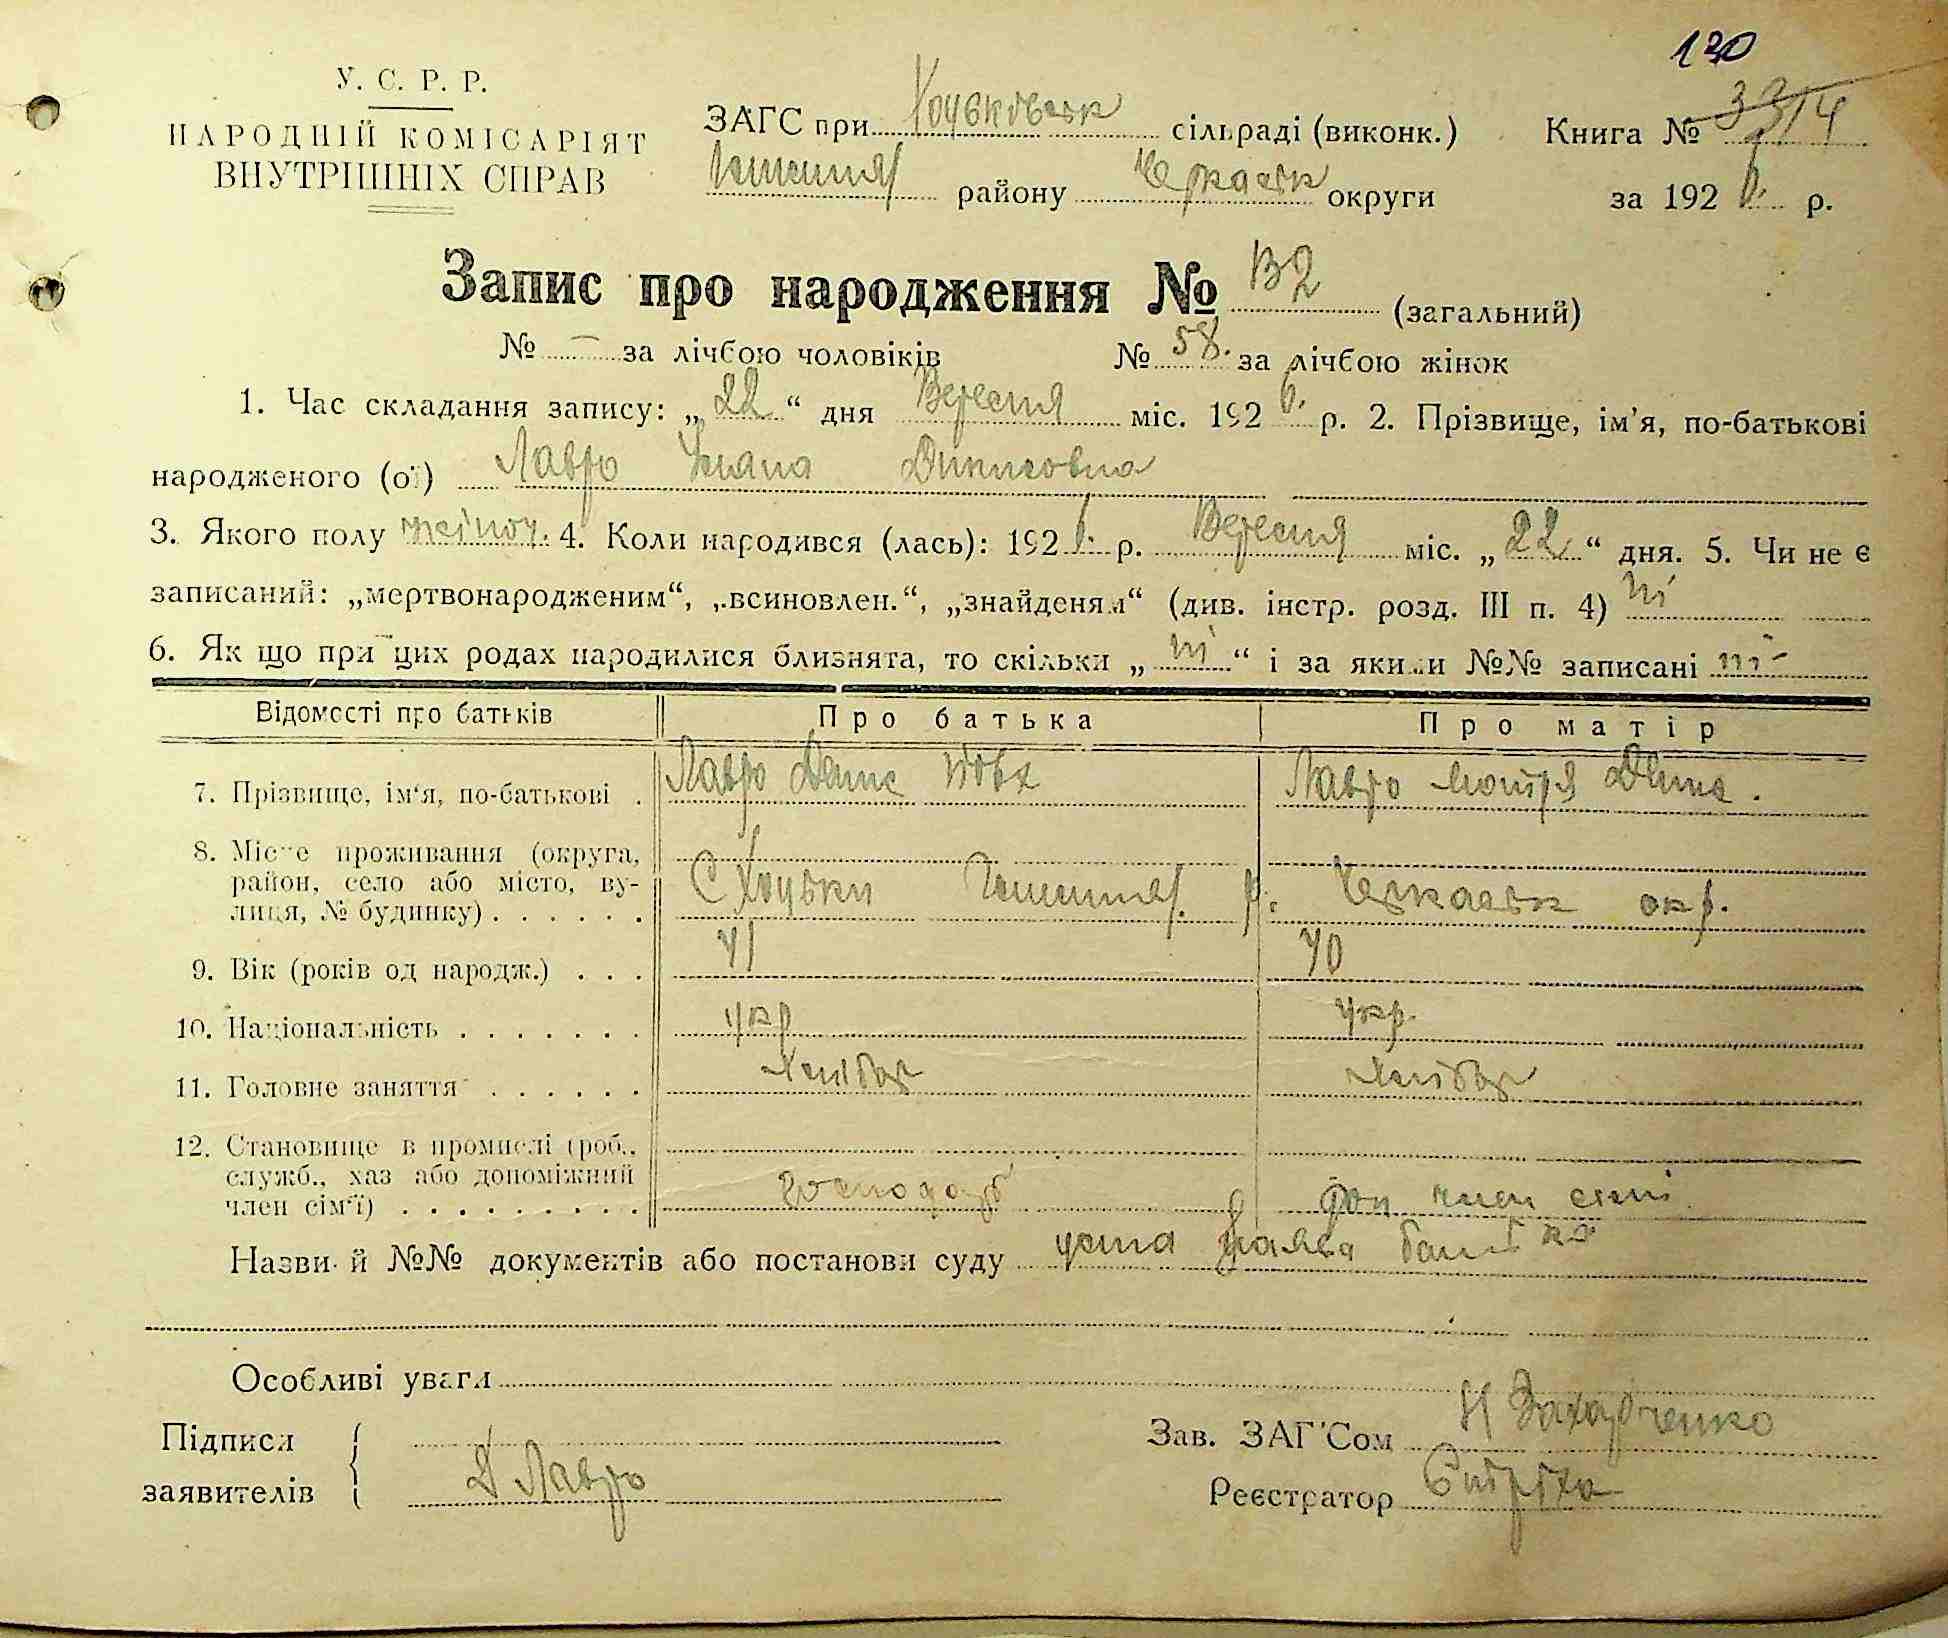 130
У. С. Р. Р.
НАРОДНІЙ КОМІСАРІЯТ
ВНУТРІШНІХ СПРАВ
ЗАГС при Хоцьківськ сільраді (виконк.) Книга № 3314
району Черкаськ округи за 1926 р.
Запис про народження № 132 (загальний)
№ — за лічбою чоловіків № 58. за лічбою жінок
1. Час складання запису: „22“ дня Вересня міс. 1926. р. 2. Прізвище, ім’я, по-батькові
народженого (ої) Лавро Уляна Денисовна
3. Якого полу жіноч. 4. Коли народився (лась): 1926. р. Вересня міс. „22“ дня. 5. Чи не є
записаний: „мертвонародженим“, „всиновлен.“, „знайденям“ (див. інстр. розд. III п. 4) ні
6. Як що при цих родах народилися близнята, то скільки „ні“ і за якими №№ записані ні-
Відомості про батьків Про батька Про матір
7. Прізвище, ім‘я, по-батькові . Лавро Денис Лавро Мотря
8. Місце проживання (округа,
район, село або місто, ву-
лиця, № будинку) . . . . . . С Хоцьки р. Черкаськ окр.
9. Вік (років од народж.) . . . 41 40
10. Національність . . . . . . . укр укр.
11. Головне заняття . . . . . . хлібор хлібор
12. Становище в промислі (роб.,
служб., хаз або допоміжний
член сім‘ї) . . . . . . . . . господарь доп член сімї
Назви й №№ документів або постанови суду усна заява батька
Особливі уваги
Підписи
заявителів Д Лавро
Зав. ЗАГС‘ом Н Захарченко
Реєстратор